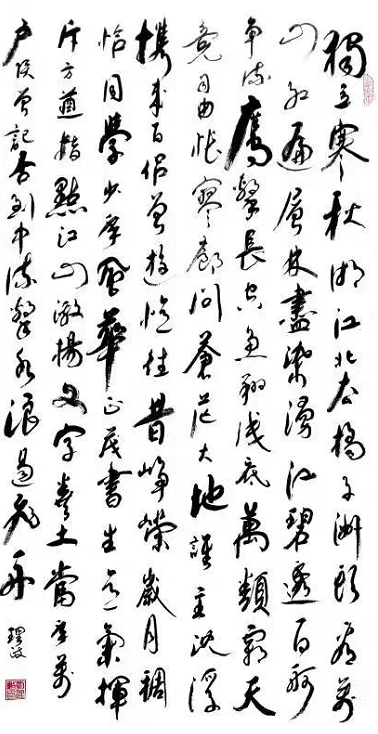 獨立寒秋湘江北去橘子洲頭看萬
山紅遍層林盡染漫江碧透百舸
爭流鷹擊長空魚翔淺底萬類霜天
竞自由悵寥廓問蒼茫大地誰主沉浮
攜來百侣曾遊憶往昔崢嶸歲月稠
恰同學少年風華正茂書生意氣揮
斥方遒指點江山激揚文字糞土當年萬
户侯曾記否到中流擊水浪遏飛舟